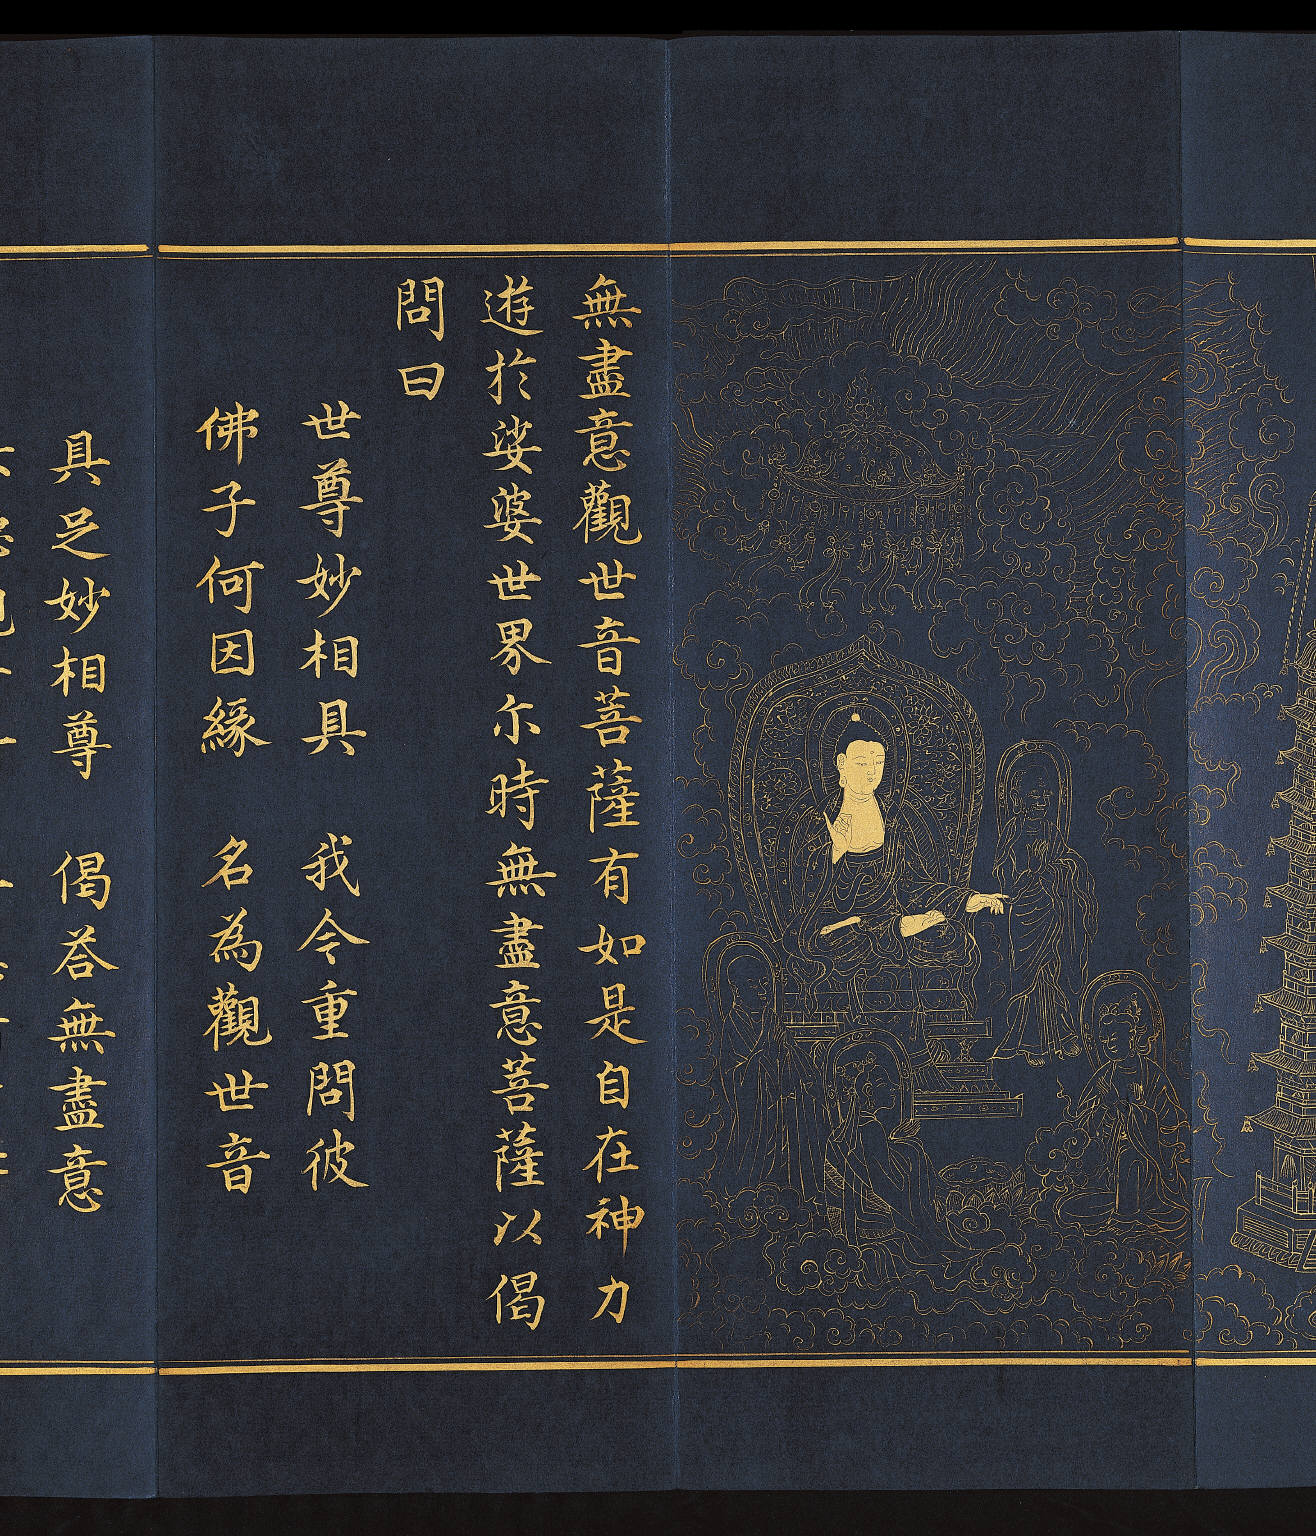 無盡意觀世音菩薩有如是自在神力
遊於娑婆世界尒時無盡意菩薩以偈
問曰
世尊妙相具　我今重問彼
佛子何因緣　名為觀世音
具足妙相尊　偈荅無盡意